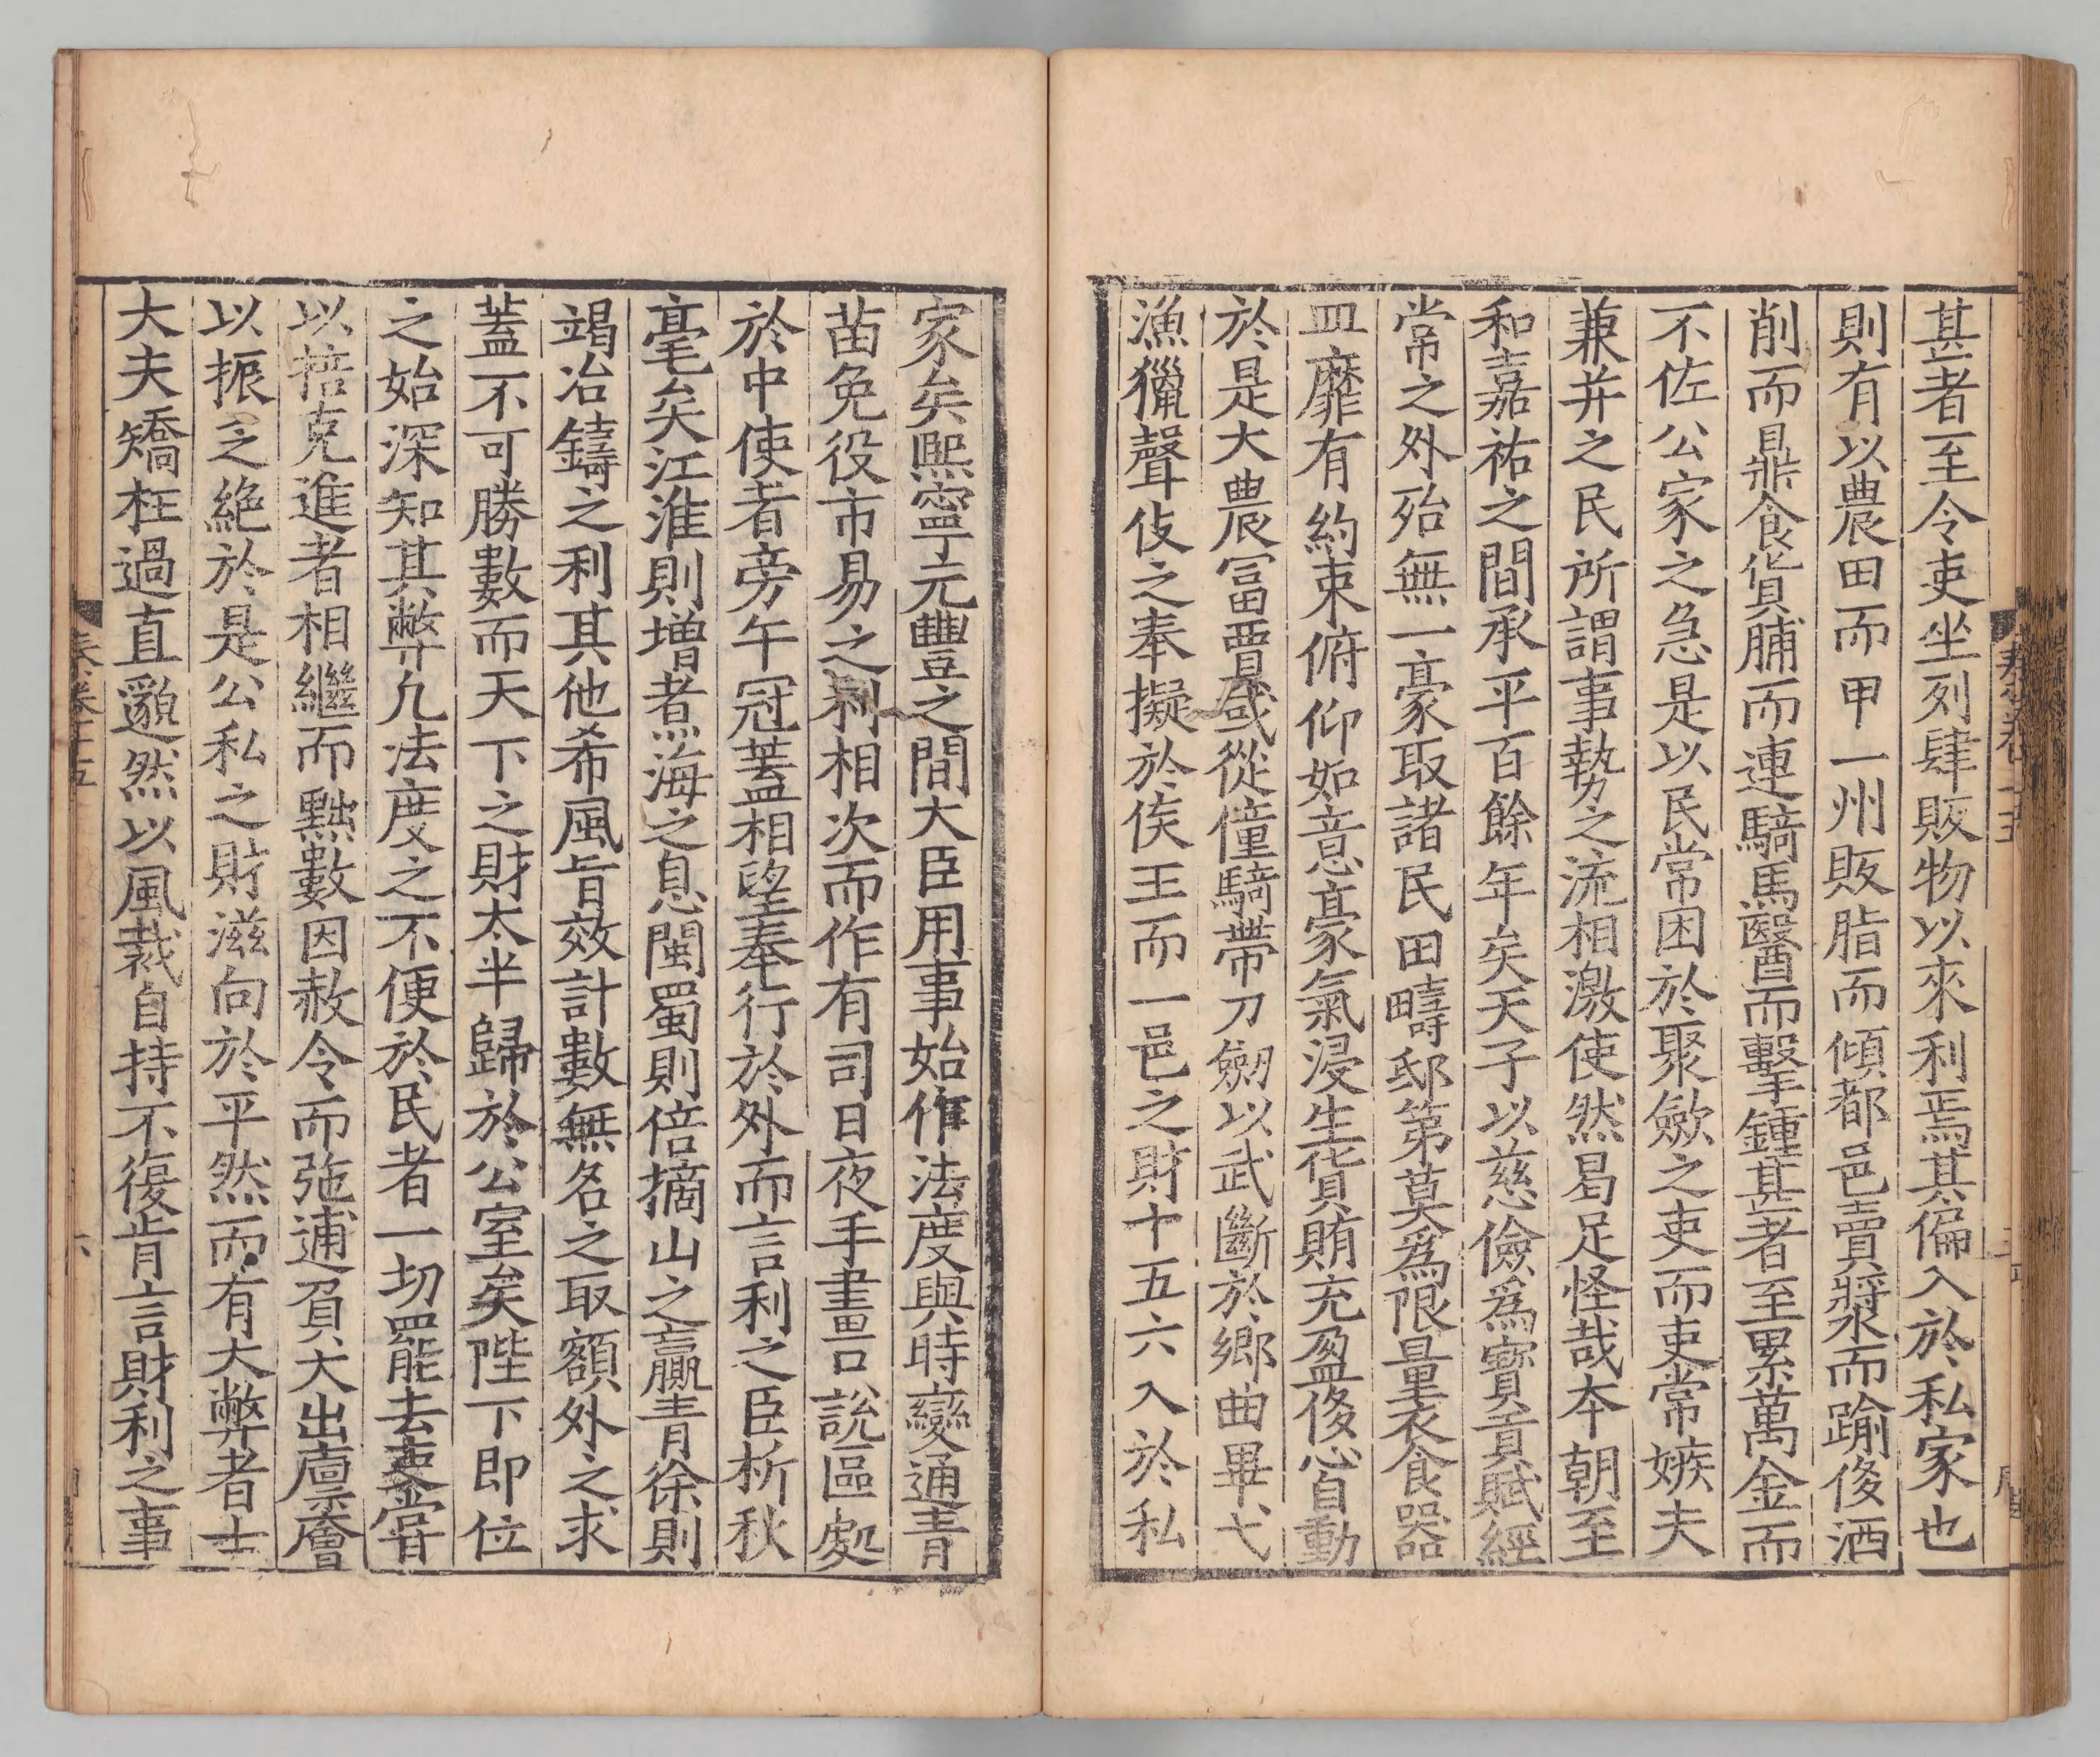 甚者至令吏坐列肆販物以來利焉其偏入於私家也
則有以農田而甲一州販脂而傾都邑賣漿而踰侈洒
削而鼎食貨脯而連騎馬醫而擊鍾甚者至累萬金而
不佐公家之急是以民常困於聚歛之吏而吏常嫉夫
兼并之民所謂事勢之流相激使然曷足怪哉本朝至
和嘉祐之間承平百餘年矣天子以慈儉爲寳貢賦經
常之外殆無一豪取諸民田疇邸第莫爲限量衣食器
皿靡有約束俯仰如意豪氣浸生貨賄充盈侈心自動
於是大農冨賈或從僮騎帶刀劒以武斷於鄉曲畢弋
漁獵聲伎之奉擬於侯王而一邑之財十五六入於私
家矣熈寧元豐之間大臣用事始作法度與時變通青
苗免役市易之利相次而作有司日夜手畫口說區處
於中使者旁午冠蓋相望奉行於外而言利之臣析秋
毫矣江淮則增煮海之息閩蜀則倍摘山之贏青徐則
竭冶鑄之利其他希風旨效計數無名之取額外之求
蓋不可勝數而天下之財太半歸於公室矣陛下即位
之始深知其弊凢法度之不便於民者一切罷去吏嘗
以掊克進者相繼而黜數因赦令而弛逋負大出廩廥
以振乏絶於是公私之財滋向於平然而有大弊者士
大夫矯枉過直邈然以風裁自持不復肯言財利之事